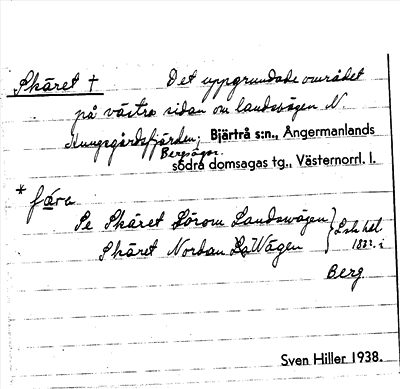 Skäret †
Det uppgrundade området
på västra sidan om landsvägen N.
Kungsgårdsfjärden; Bjärtrå s:n., Ångermanlands
Bergsågen.
södra domsagas tg., Västernorrl. l.
* fä̱ra
Pe Skäret Sörom Landswägen
Skäret Nordan Wägen
1832. i
Berg
Sven Hiller 1938.